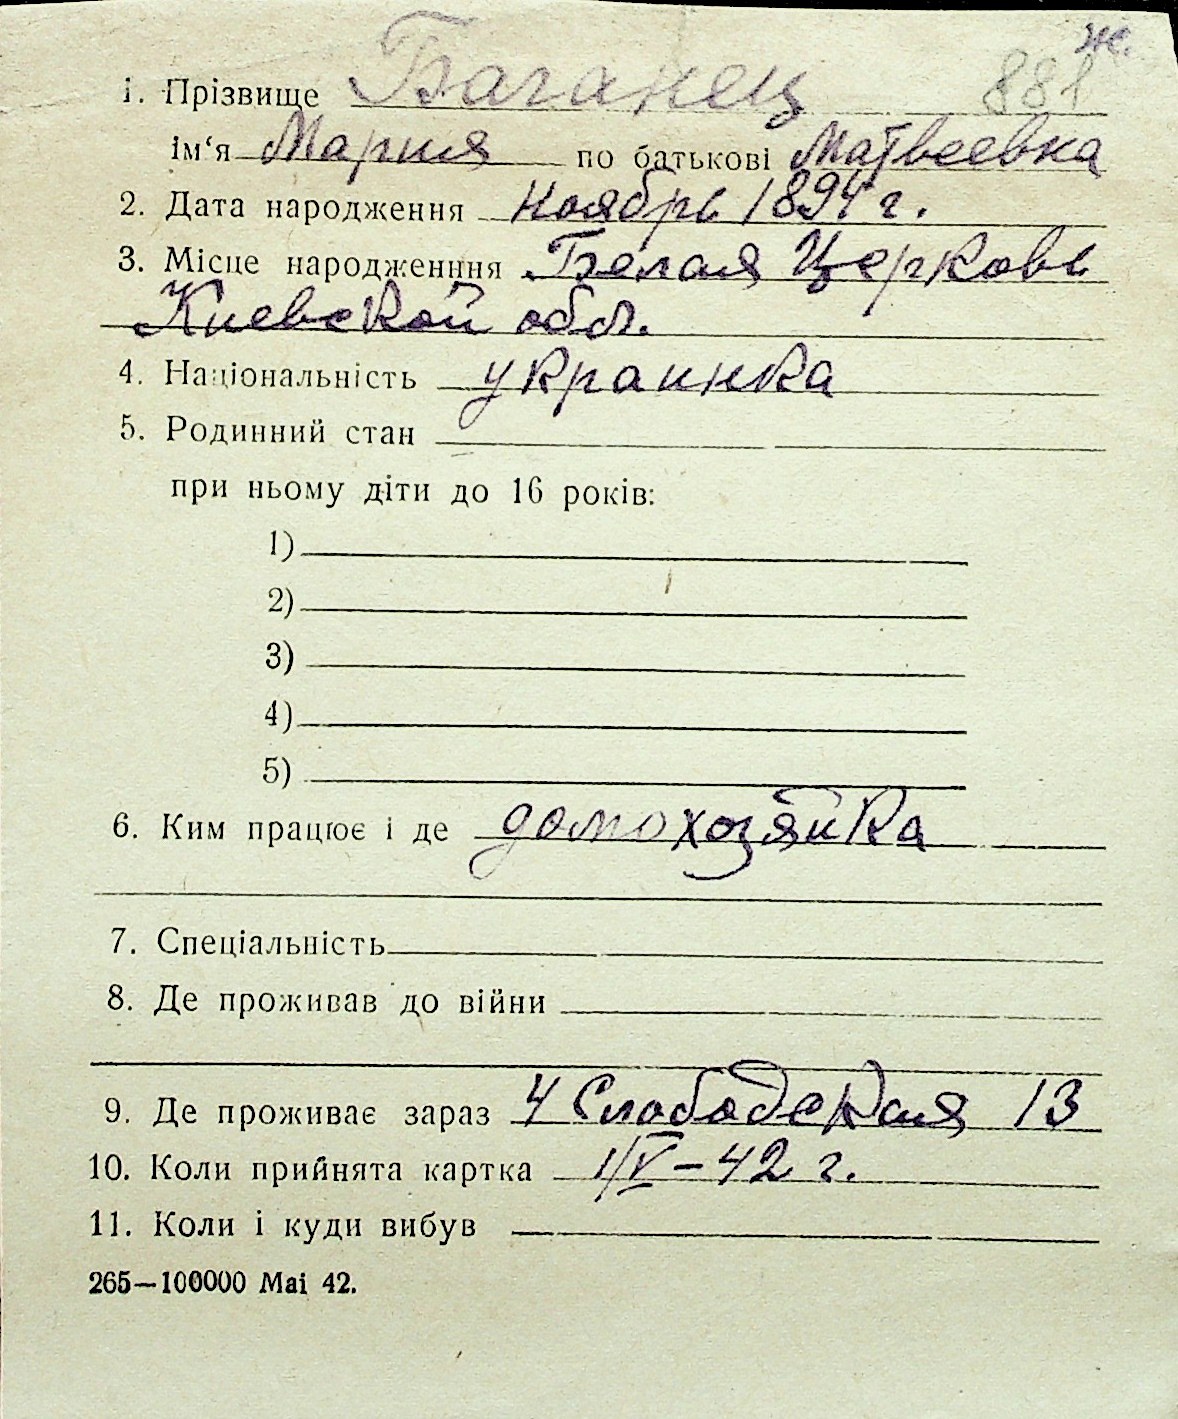 ж.
1. Прізвище Баганец 881
ім‘я Мария по батькові Матвеевна
2. Дата народження Ноябрь 1894 г.
3. Місце народженння Белая Церковь
Киевской обл.
4. Національність украинка
5. Родинний стан
при ньому діти до 16 років:
1)
2)
3)
4)
5)
6. Ким працює і де домохозяйка
7. Спеціальність
8. Де проживав до війни
9. Де проживає зараз 4 Слободская 13
10. Коли прийнята картка 1/V–42 г.
11. Коли і куди вибув
265—100000 Mai 42.